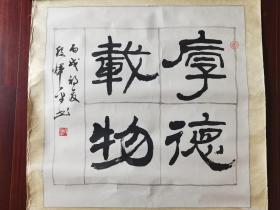 厚德
載物
丙戌初夏